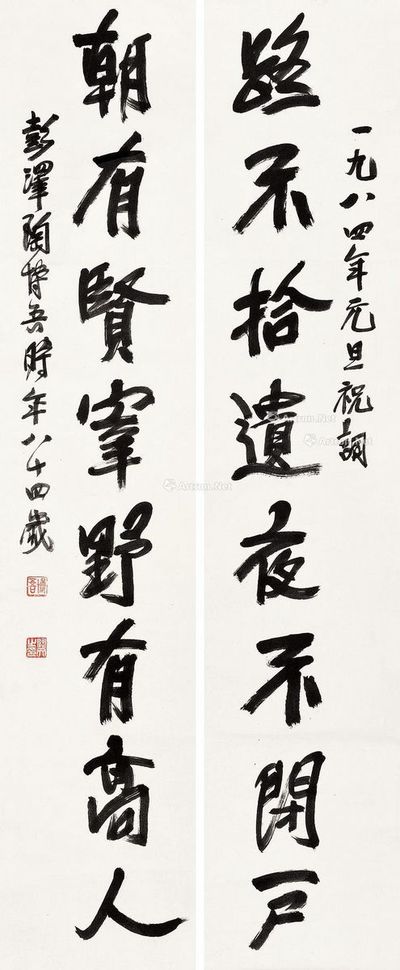 一九八四年元旦祝詞
路不拾遺夜不閉戶
朝有賢宰野有高人
彭澤陶博吾時年八十四歲
Artron.Net